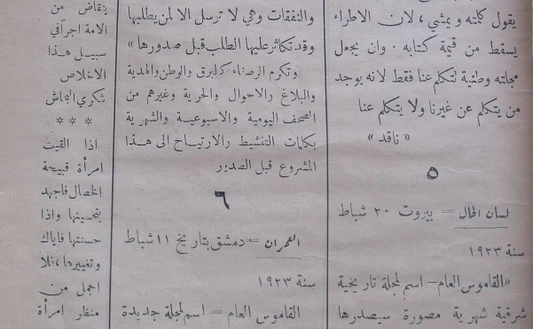 يقول كلمته ويمشي، لان الاطراء
يسقط من قيمة كتابه. وان يجعل
مجلته وطنية لتكلم عنا فقط لانه يوجد
من يتكلم عن غيرنا ولا يتكلم عنا
« ناقد »
٥
لسان الحال = بيروت ٢٠ شباط
سنة ١٩٢٣
«القاموس العام – اسم لمجلة تاريخية
شرقية شهرية مصورة سيصدرها
والنفقات وهي لا ترسل الا لمن يطلبها
وقد تكاثر عليها الطلب قبل صدورها»
وتكرم الرصفاء كالبرق والوطن والهدية
والبلاغ والاحوال والحرية وغيرهم من
الصحف اليومية والاسبوعية والشهرية
بكلمات التنشيط والارتياح الى هذا
المشروع قبل الصدور
٦
العمران = دمشق بتاريخ ١١ شباط
سنة ١٩٢٣
القاموس العام = اسم لمجلة جديدة
يتقاضى من
الامة اجرا في
سبيل هذا
الاخلاص
شكري البخاش
* * *
اذا القيت
امرأة قبيحة
الخصال فاجهد
بتحسينها واذا
حسنتها فاياك
وتغييرها، فلا
اجمل من
منقار امرأة